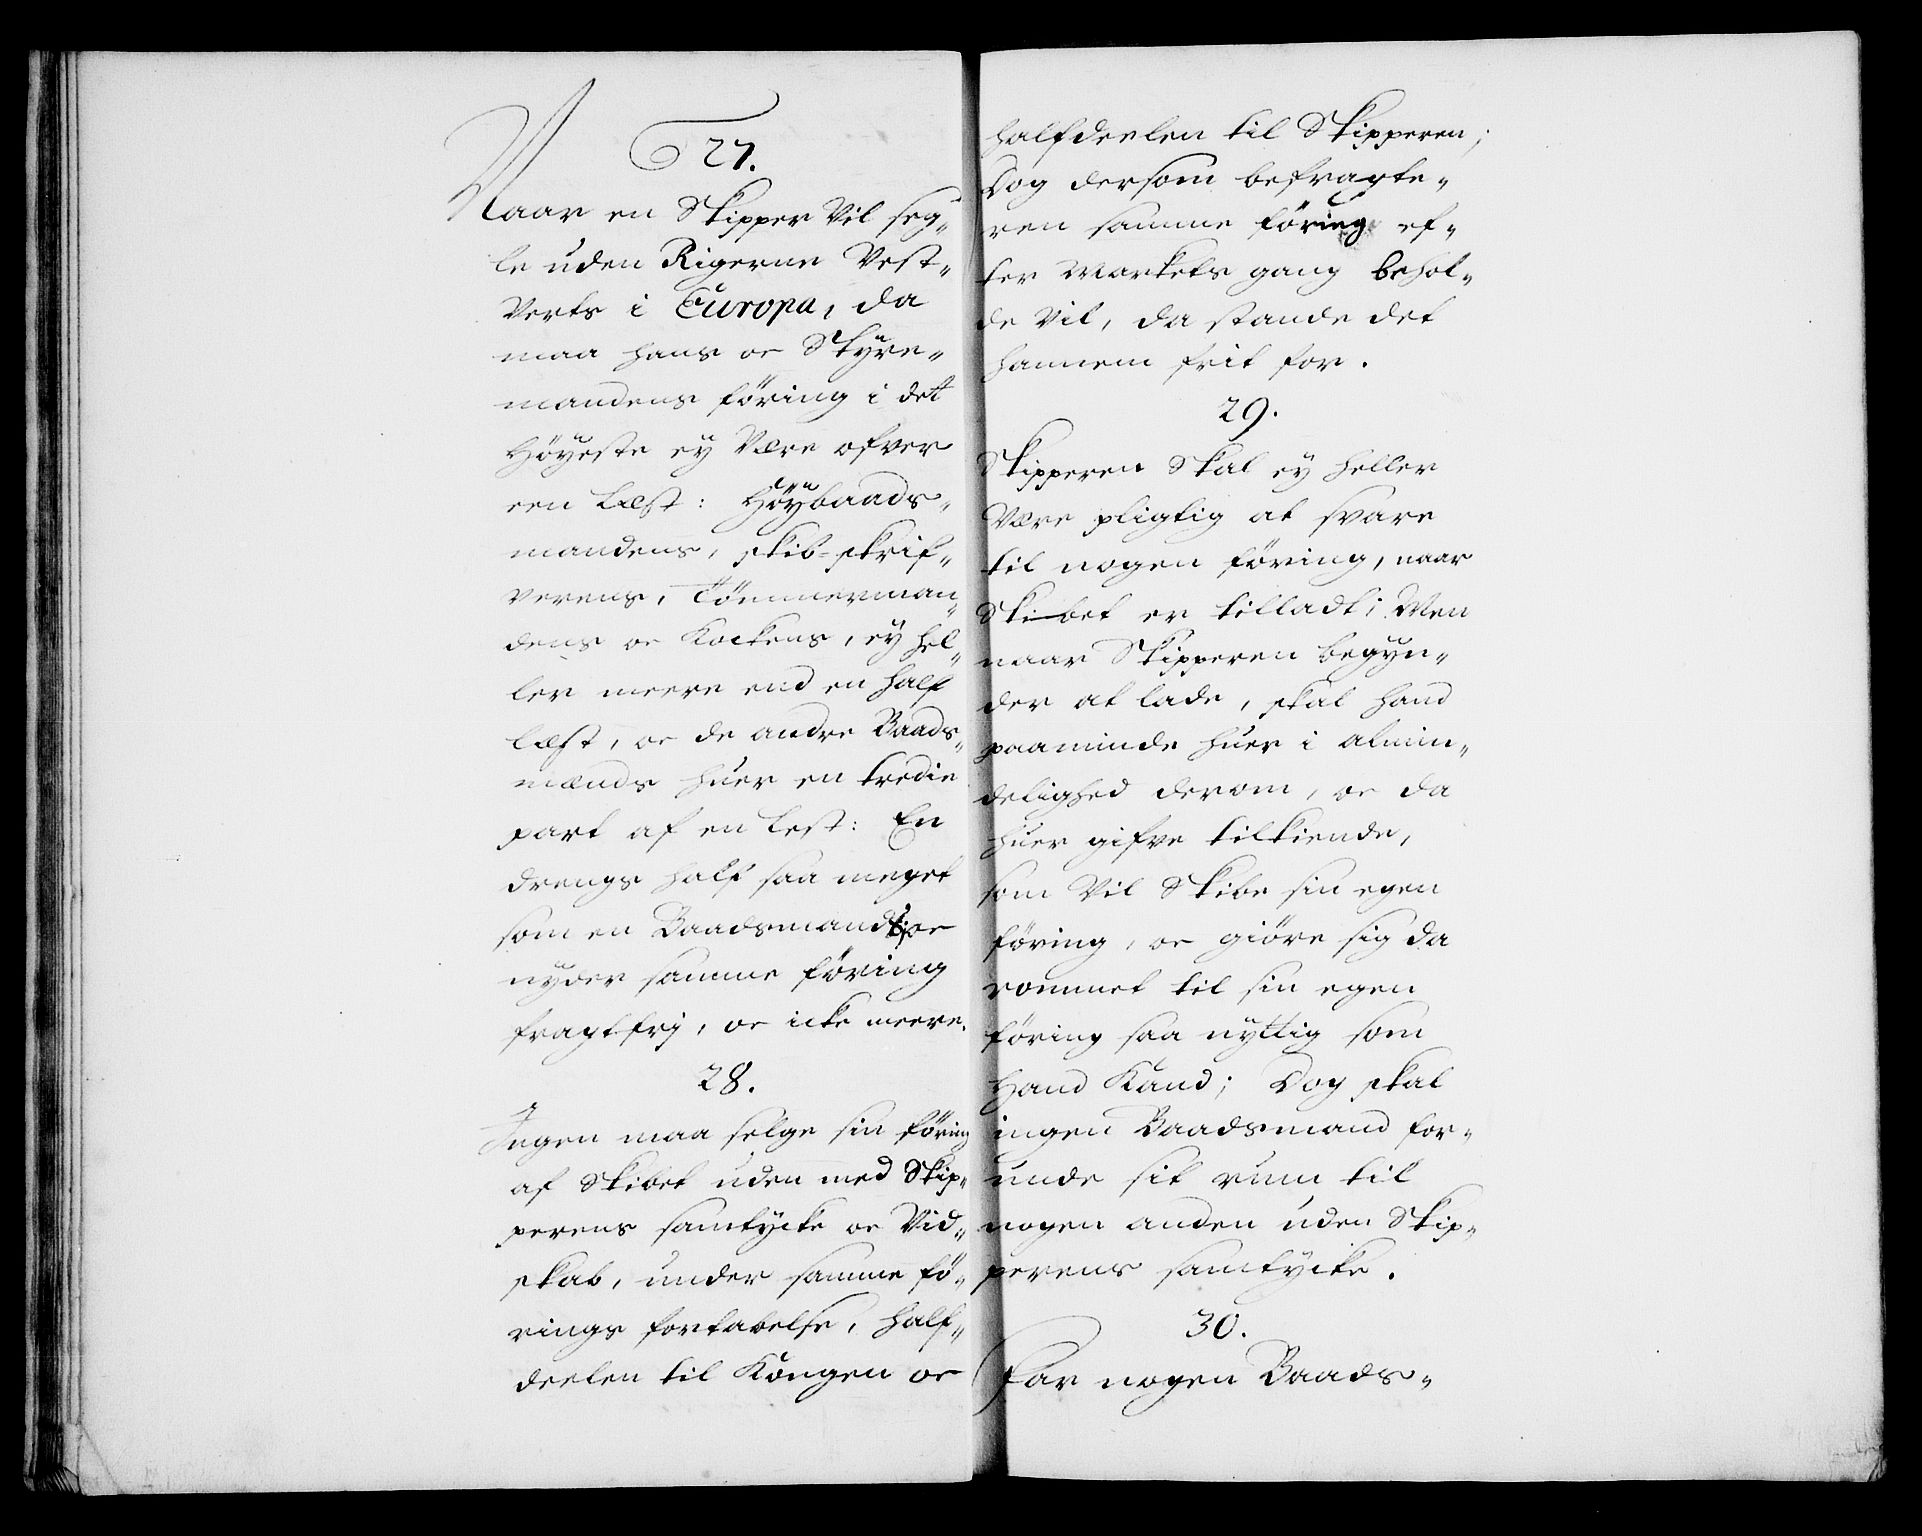 27.
Naar en Skipper Vil seg-
le uden Rigerne Vest-
Verts i Europa, da
maa hans oc Styre-
mandens föring i det
Höyeste ey Være ofver
een Læst: Höybaads-
mandens, skib-skrif-
verens, Tömmerman-
dens oc Kockens, ey hel-
ler meere end en half
læst, oc de andre Baads-
mænds huer en tredie
part af en Lest: En
drengs half saa meget
som en Baadsmands; oc
nyder samme föring
fragtfrj, oc icke meere.
28.
Ingen maa selge sin föring
af Skibet uden med Skip-
perens samtycke oc Vid-
skab, under samme fö-
rings fortabelse, half-
deelen til Kongen oc
halfdeelen til Skipperen;
Dog dersom befragte-
ren samme föring ef-
ter Markets gang behol-
de Vil, da stande det
hannem frit for.
29.
Skipperen Skal ey heller
Være pligtig at svare
til nogen föring, naar
Skibet er tilladt; Men
naar Skipperen begyn-
der at lade, skal hand
paaminde huer i almin-
delighed derom, oc da
huer gifve tilkiende,
som Vil Skibe sin egen
föring, oc giöre sig da
rommet til sin egen
föring saa nyttig som
Hand Kand; Dog skal
ingen Baadsmand for-
unde sit rum til
nogen anden uden Skip-
perens samtycke.
30.
Har nogen Baads-